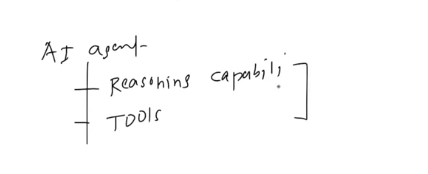 AI agent
Reasoning capabili
TOOls